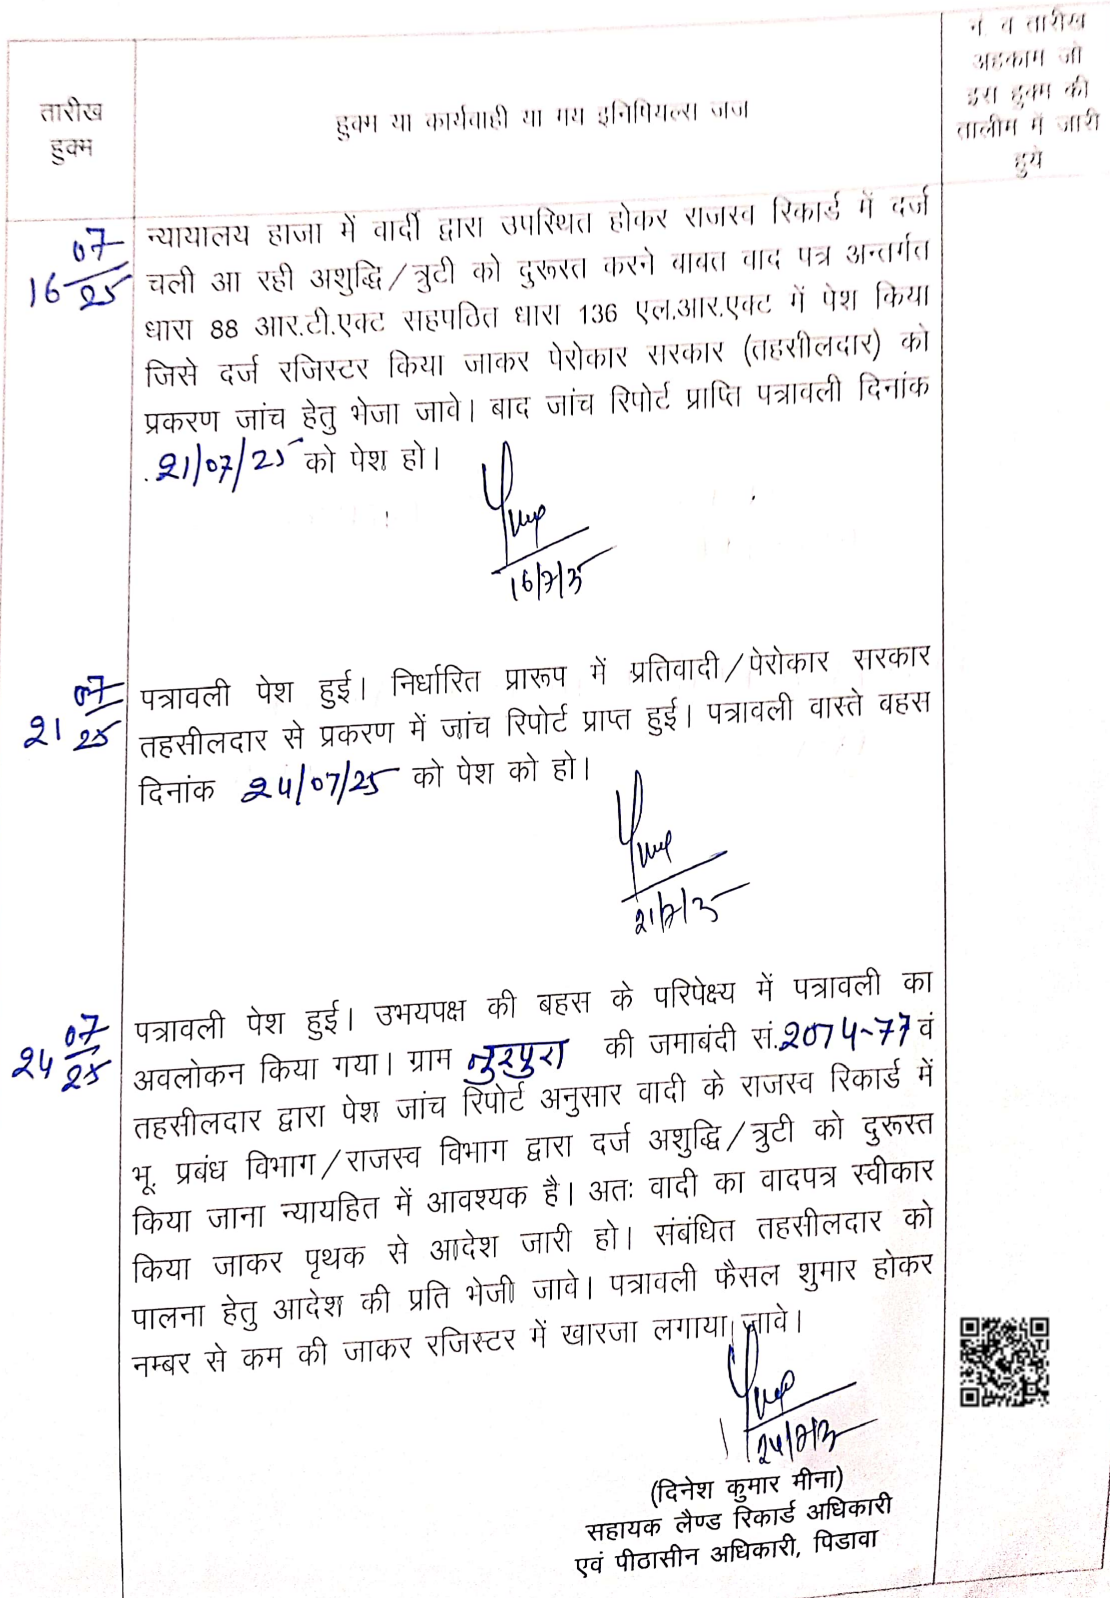 तारीख
हुक्म
हुक्म या कार्यवाही या मय इनिषियल्स जज
नं. व तारीख
अहकाम जो
इस हुक्म की
तालीम में जारी
हुये
16 07/25
न्यायालय हाजा में वादी द्वारा उपस्थित होकर राजस्व रिकार्ड में दर्ज
चली आ रही अशुद्धि/त्रुटी को दुरूस्त करने बाबत वाद पत्र अन्तर्गत
धारा 88 आर.टी.एक्ट सहपठित धारा 136 एल.आर.एक्ट में पेश किया
जिसे दर्ज रजिस्टर किया जाकर पेरोकार सरकार (तहसीलदार) को
प्रकरण जांच हेतु भेजा जावे। बाद जांच रिपोर्ट प्राप्ति पत्रावली दिनांक
21/07/25 को पेश हो।
16/7/25
21 07/25
पत्रावली पेश हुई। निर्धारित प्रारूप में प्रतिवादी/पेरोकार सरकार
तहसीलदार से प्रकरण में जांच रिपोर्ट प्राप्त हुई। पत्रावली वास्ते वहस
दिनांक 24/07/25 को पेश को हो।
21/7/25
24 07/25
पत्रावली पेश हुई। उभयपक्ष की बहस के परिपेक्ष्य में पत्रावली का
अवलोकन किया गया। ग्राम नुरपुरा की जमाबंदी सं.2074-77 वं
तहसीलदार द्वारा पेश जांच रिपोर्ट अनुसार वादी के राजस्व रिकार्ड में
भू. प्रबंध विभाग/राजस्व विभाग द्वारा दर्ज अशुद्धि/त्रुटी को दुरूस्त
किया जाना न्यायहित में आवश्यक है। अतः वादी का वादपत्र स्वीकार
किया जाकर पृथक से आदेश जारी हो। संबंधित तहसीलदार को
पालना हेतु आदेश की प्रति भेजी जावे। पत्रावली फैसल शुमार होकर
नम्बर से कम की जाकर रजिस्टर में खारजा लगाया जावे।
24/7/25
(दिनेश कुमार मीना)
सहायक लैण्ड रिकार्ड अधिकारी
एवं पीठासीन अधिकारी, पिडावा